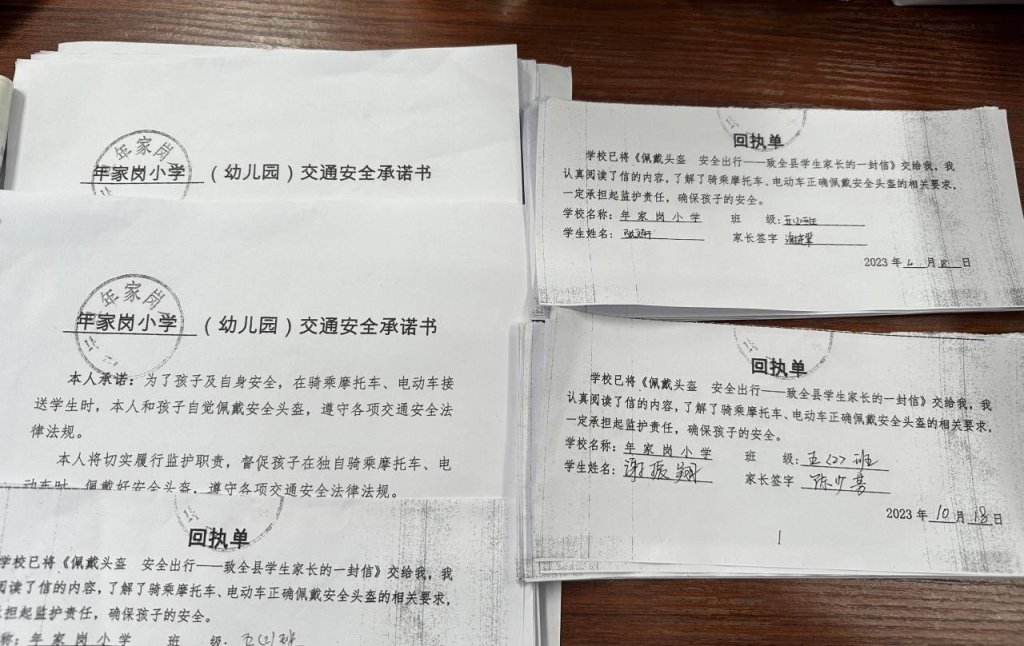 年家岗
年家岗小学（幼儿园）交通安全承诺书
年家岗
年家岗小学（幼儿园）交通安全承诺书
本人承诺：为了孩子及自身安全，在骑乘摩托车、电动车接
送学生时，本人和孩子自觉佩戴安全头盔，遵守各项交通安全法
律法规。
本人将切实履行监护职责，督促孩子在独自骑乘摩托车、电
动车时，佩戴好安全头盔，遵守各项交通安全法律法规。
回执单
学校已将《佩戴头盔 安全出行——致全县学生家长的一封信》交给我，我
阅读了信的内容，了解了骑乘摩托车、电动车正确佩戴安全头盔的相关要求，
承担起监护责任，确保孩子的安全。
称：年家岗小学 班 级：五(2)班
回执单
学校已将《佩戴头盔 安全出行——致全县学生家长的一封信》交给我，我
认真阅读了信的内容，了解了骑乘摩托车、电动车正确佩戴安全头盔的相关要求，
一定承担起监护责任，确保孩子的安全。
学校名称：年家岗小学 班 级：
学生姓名： 家长签字
2023年 月8日
回执单
学校已将《佩戴头盔 安全出行——致全县学生家长的一封信》交给我，我
认真阅读了信的内容，了解了骑乘摩托车、电动车正确佩戴安全头盔的相关要求，
一定承担起监护责任，确保孩子的安全。
学校名称：年家岗小学 班 级：五(2)班
学生姓名：谢振翔 家长签字
2023年10月18日